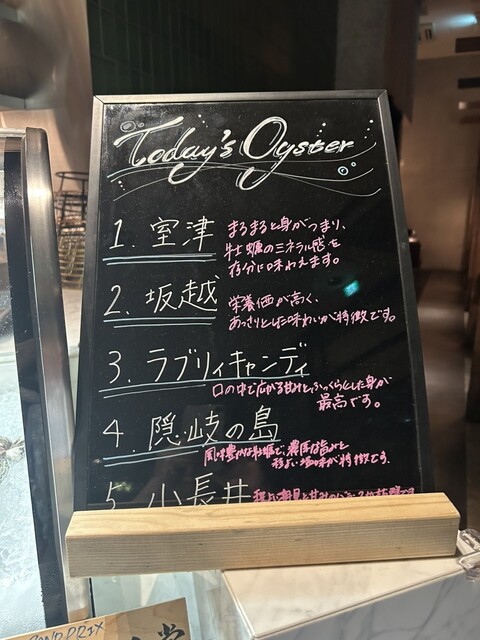 Today's Oyster
1. 室津
まるまると身がつまり、
牡蠣のミネラル感を
存分に味わえます。
2. 坂越
栄養価が高く、
あっさりとした味わいが特徴です。
3. ラブリィキャンディ
口の中で広がる甘みと、ふっくらとした身が
最高です。
4. 隠岐の島
風味豊かな牡蠣で、濃厚な旨みと
程よい塩味が特徴です。
5. 小長井
GRAND PRIX